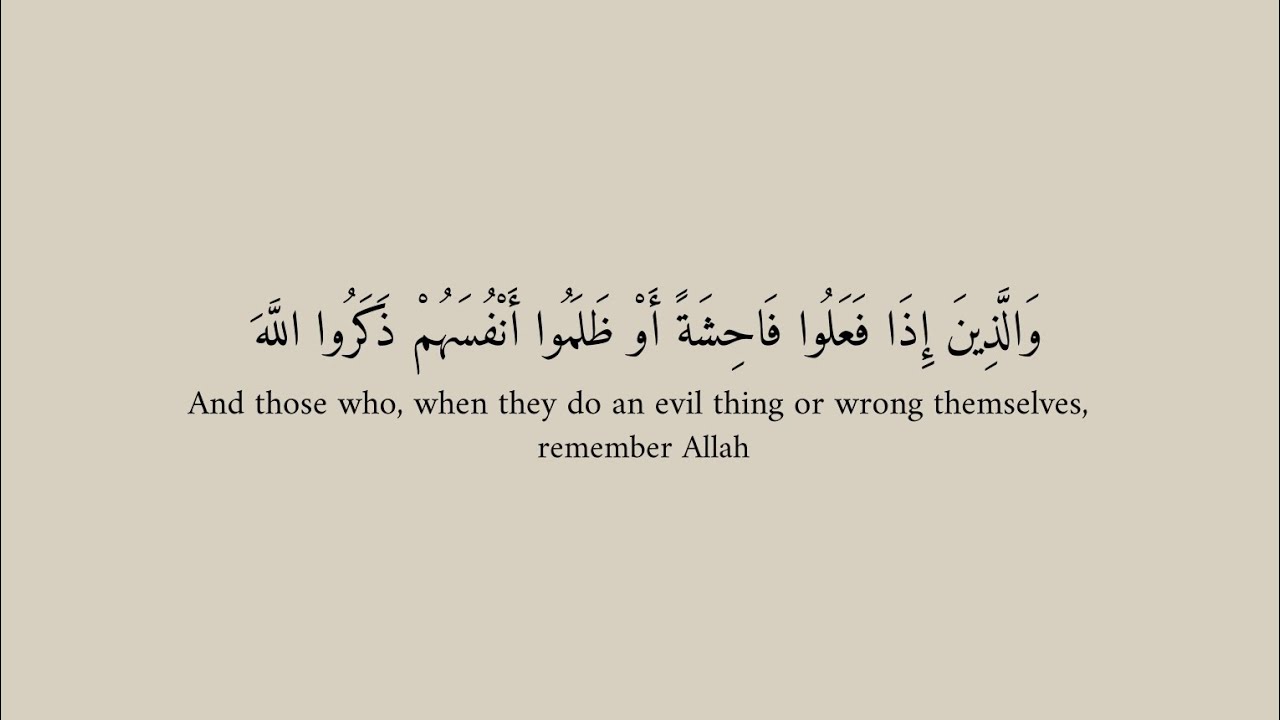 وَالَّذِينَ إِذَا فَعَلُوا فَاحِشَةً أَوْ ظَلَمُوا أَنْفُسَهُمْ ذَكَرُوا اللَّهَ
And those who, when they do an evil thing or wrong themselves,
remember Allah